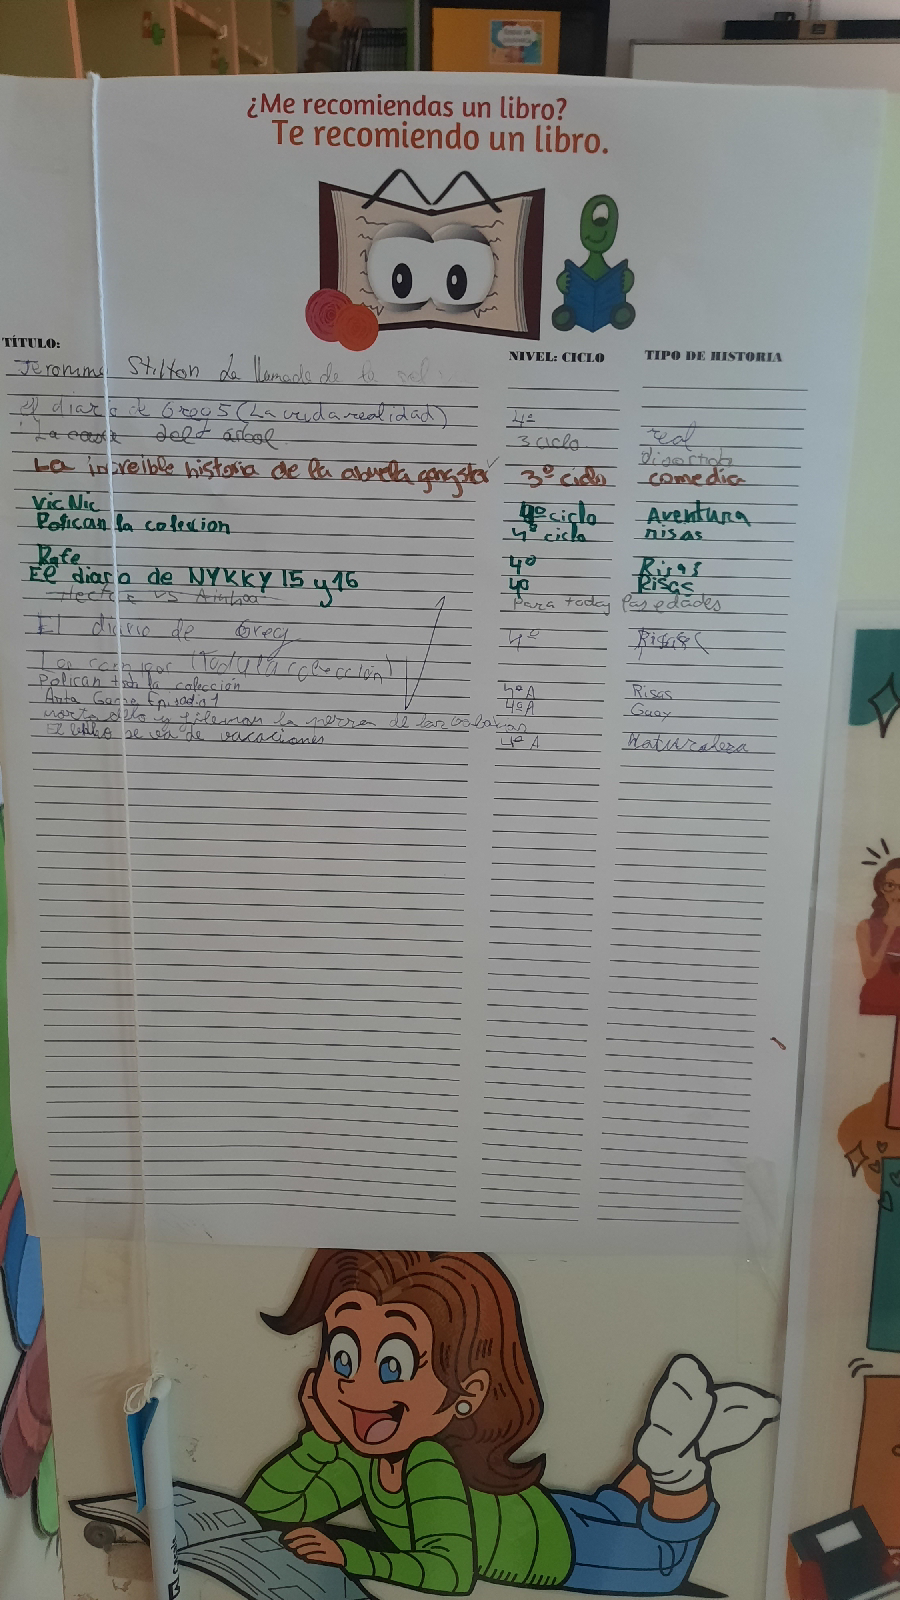 ¿Me recomiendas un libro?
Te recomiendo un libro.
TÍTULO: NIVEL: CICLO TIPO DE HISTORIA
Jeronimo Stilton La llamada de la
el diario de Greg 5 (La cruda realidad) 4º
La casa del árbol 3 ciclo real
Divertida
La increible historia de la abuela gangster 3º ciclo comedia
Vic Nic 4º ciclo Aventura
Polican la colecion 4º ciclo risas
Rafe 4º Risas
El diario de NYKKY 15 y 16 4º Risas
vs Ainhoa Para todas las edades
El diario de Greg 4º Risas
(Toda la colección)
Polican toda la colección 4º A Risas
Game Episodio 1 4º A Guay
y filemon la perra de las
El se va de vacaciones 4º A Naturaleza